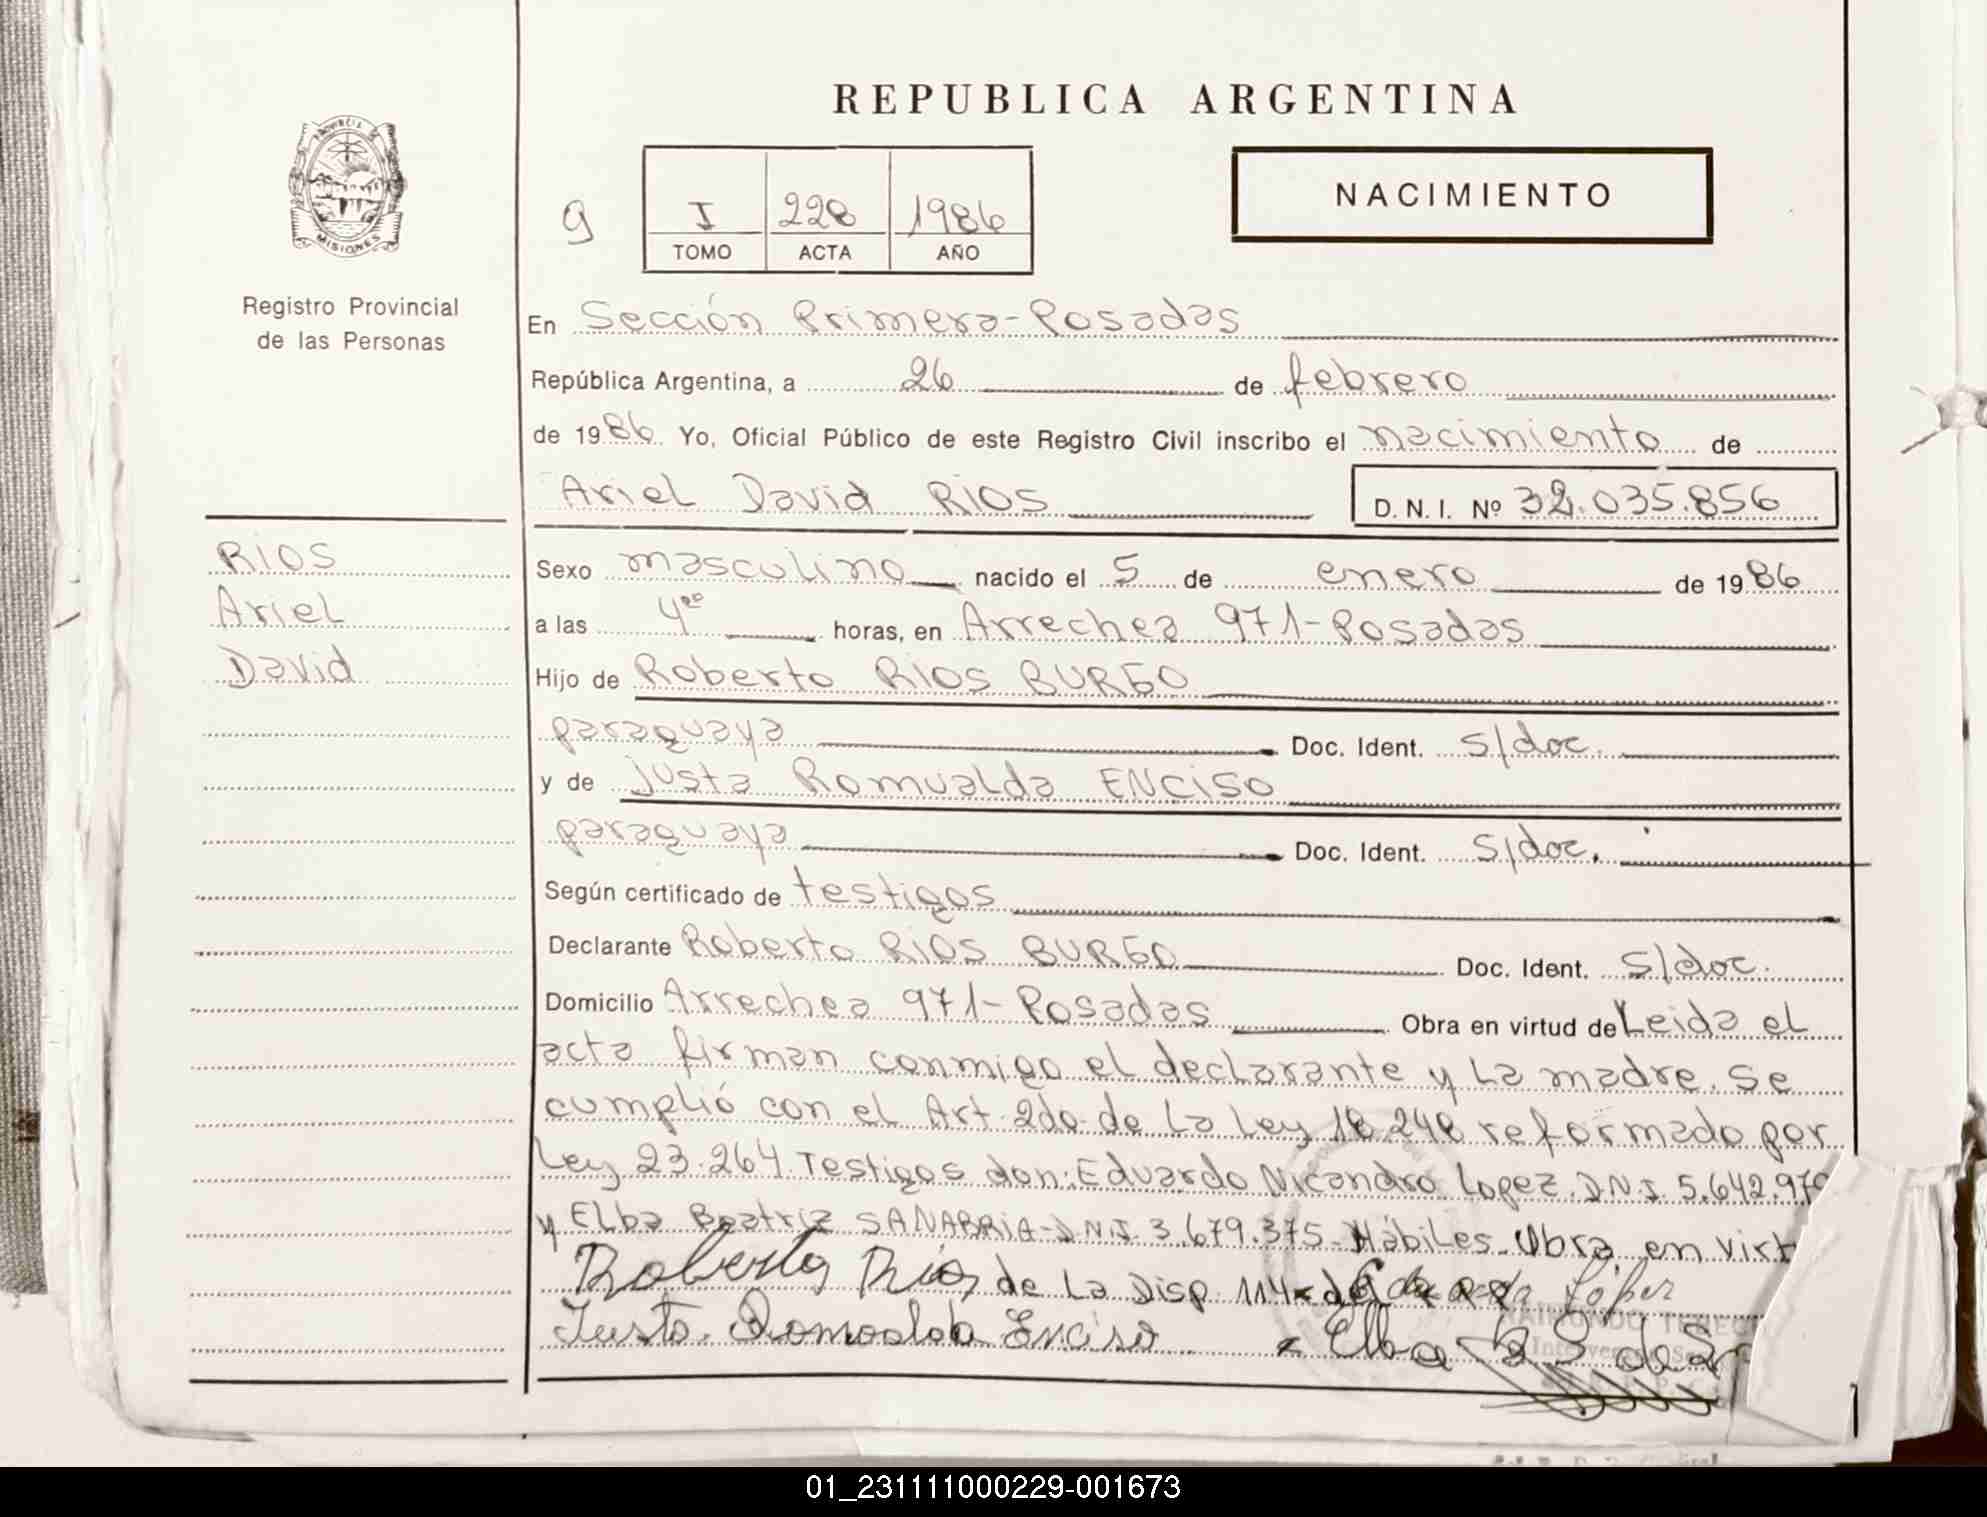 REPUBLICA ARGENTINA
PROVINCIA DE
MISIONES
Registro Provincial
de las Personas
9
I 228 1986
TOMO ACTA AÑO
NACIMIENTO
En Sección Primera-Posadas
República Argentina, a 26 de febrero
de 1986 Yo, Oficial Público de este Registro Civil inscribo el nacimiento de
Ariel David RIOS
D. N. I. Nº 32.035.856
RIOS
Ariel
David
Sexo masculino nacido el 5 de enero de 1986
a las 4°° horas, en Arrechea 971-Posadas
Hijo de Roberto RIOS BURGO
paraguaya Doc. Ident. s/doc.
y de Justa Romualda ENCISO
paraguaya Doc. Ident. s/doc.
Según certificado de testigos
Declarante Roberto RIOS BURGO Doc. Ident. s/doc.
Domicilio Arrechea 971-Posadas Obra en virtud de Leida el
acta firman conmigo el declarante y La madre. Se
cumplió con el Art. 2do. de La Ley 18.248 reformado por
Ley 23.264. Testigos don: Eduardo Nicandro Lopez. D.N.I. 5.642.970
y Elba Beatriz SANABRIA-D.N.I. 3.679.375-Hábiles-Obra en virt
Roberto Rios de La Disp. 114
López
Justa Romualda Enciso Elba
01_231111000229-001673